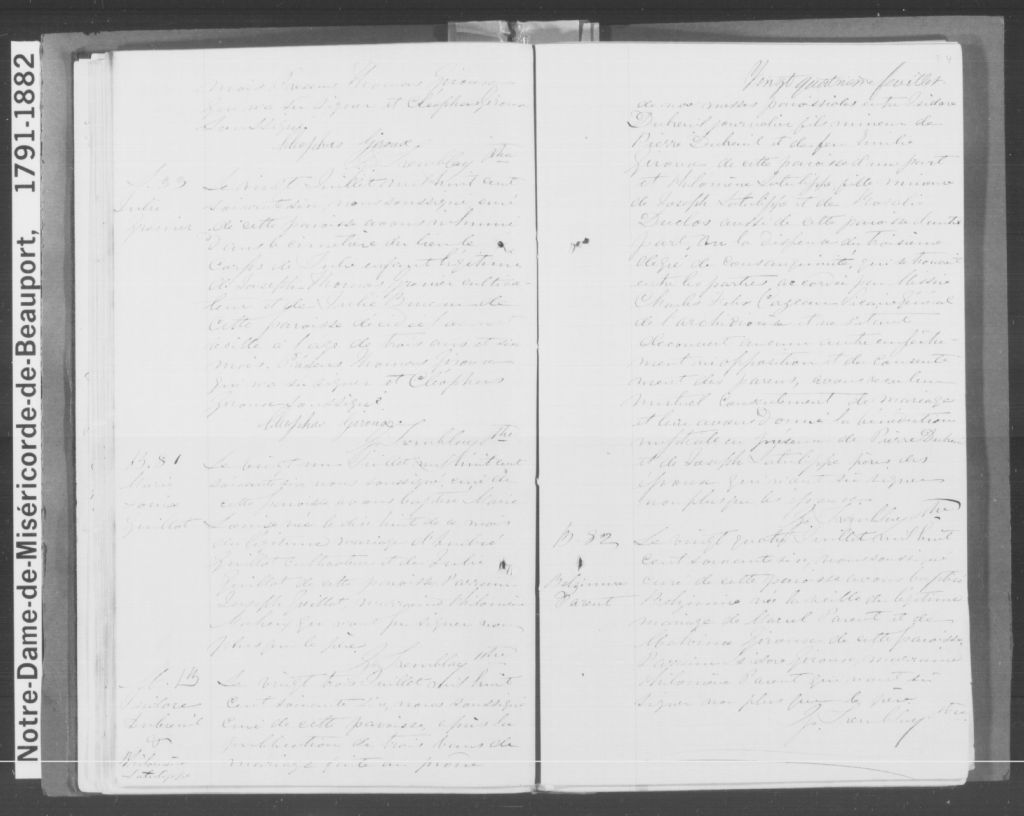 Notre-Dame-de-Miséricorde-de-Beauport, 1791-1882
mois. Thomas Giroux
qui n'a su signer et Cléophas Giroux
Soussigné.
Cléophas Giroux.
G. Tremblay Ptre
S. 33
Julie
Grenier
Le vingt Juillet mil huit cent
soixante six, nous soussigné, curé
de cette paroisse avons inhumé
dans le cimetière du lieu le
corps de Julie enfant légitime
de Joseph Thomas Grenier cultiva-
teur et de Julie de
cette paroisse décédée
à l'age de trois ans et six
mois. Présens Thomas Giroux
qui n'a su signer et Cléophas
Giroux soussigné
Cléophas Giroux
G. Tremblay Ptre
B. 81
Marie
Louise
Guillot
Le vingt un Juillet mil huit cent
soixante six nous soussigné, curé de
cette paroisse avons baptisé Marie
Louise née le dix huit de ce mois
du légitime mariage d'André
Guillot cultivateur et de Julie
Guillot de cette paroisse Parrain
Joseph Guillot, marraine Philomène
qui n'ont pu signer non
plus que le père.
G. Tremblay Ptre
M. 14
Isidore
Dubeuil
&
Philomène
Latulippe
Le vingt trois Juillet mil huit
cent soixante six, nous soussigné
curé de cette paroisse, après la
publication de trois bans de
mariage faite au prône
Vingt quatrième feuillet
de nos messes paroissiales entre Isidore
Dubeuil journalier fils mineur de
Pierre Dubeuil et de feu Emilie
Giroux de cette paroisse d'une part
et Philomène Latulippe fille mineure
de Joseph Latulippe et de Rosalie
Duclos aussi de cette paroisse d'autre
part, Vu la dispense du troisième
degré de consanguinité, qui se trouvait
entre les parties, accordée par Messire
Charles Felix Cazeau Vicaire Général
de l'archidiocèse et ne s'étant
découvert aucun autre empêche-
ment ni opposition et du consente-
ment des parens, avons reçu leur
mutuel consentement de mariage
et leur avons donné la bénédiction
nuptiale en présence de Pierre Dubeuil
et de Joseph Latulippe pères des
époux qui n'ont su signer
non plus que les époux
G. Tremblay Ptre
B. 82
Belzimire
Parent
Le vingt quatre Juillet mil huit
cent soixante six, nous soussigné
curé de cette paroisse avons baptisé
Belzimire née la veille du légitime
mariage de Parent et de
Malvina Giroux de cette paroisse
Parrain Isidore Giroux, marraine
Philomène Parent qui n'ont su
signer non plus que le père
G. Tremblay Ptre